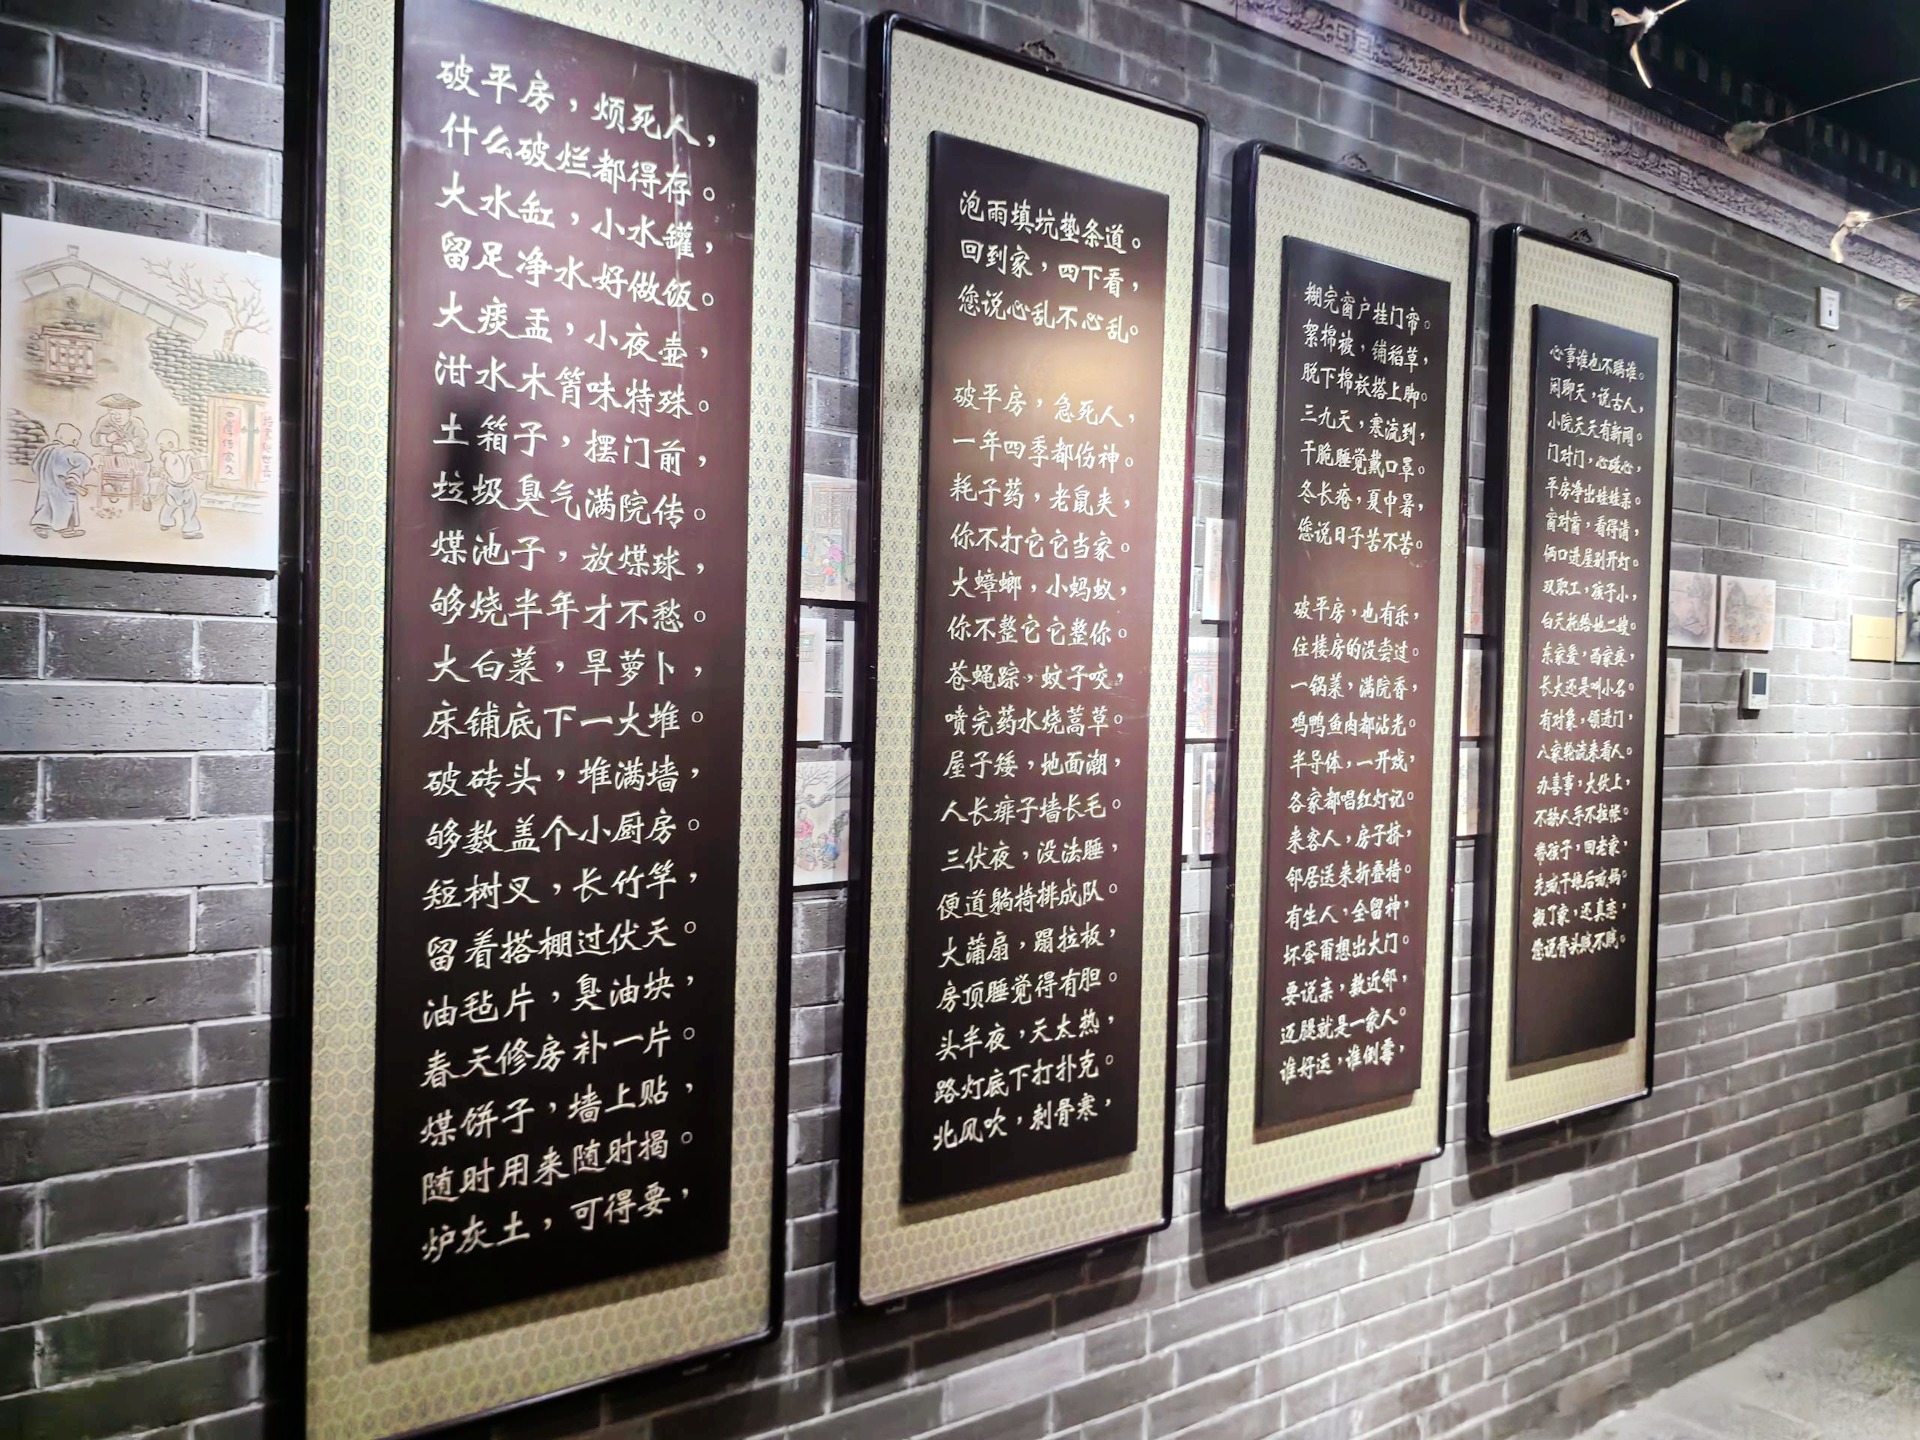 破平房，烦死人，
什么破烂都得存。
大水缸，小水罐，
留足净水好做饭。
大痰盂，小夜壶，
泔水木筲味特殊。
土箱子，摆门前，
垃圾臭气满院传。
煤池子，放煤球，
够烧半年才不愁。
大白菜，旱萝卜，
床铺底下一大堆。
破砖头，堆满墙，
够数盖个小厨房。
短树叉，长竹竿，
留着搭棚过伏天。
油毡片，臭油块，
春天修房补一片。
煤饼子，墙上贴，
随时用来随时揭。
炉灰土，可得要，
泡雨填坑垫条道。
回到家，四下看，
您说心乱不心乱。
破平房，急死人，
一年四季都伤神。
耗子药，老鼠夹，
你不打它它当家。
大蟑螂，小蚂蚁，
你不整它它整你。
苍蝇踪，蚊子咬，
喷完药水烧蒿草。
屋子矮，地面潮，
人长痱子墙长毛。
三伏夜，没法睡，
便道躺椅排成队。
大蒲扇，蹋拉板，
房顶睡觉得有胆。
头半夜，天太热，
路灯底下打扑克。
北风吹，刺骨寒，
糊完窗户挂门帘。
絮棉被，铺稻草，
脱下棉袄搭上脚。
三九天，寒流到，
干脆睡觉戴口罩。
冬长疮，夏中暑，
您说日子苦不苦。
破平房，也有乐，
住楼房的没尝过。
一锅菜，满院香，
鸡鸭鱼肉都沾光。
半导体，一开戏，
各家都唱红灯记。
来客人，房子挤，
邻居送来折叠椅。
有生人，全留神，
坏蛋甭想出大门。
要说亲，数近邻，
迈腿就是一家人。
谁好运，谁倒霉，
心事谁也不瞒谁。
闲聊天，说古人，
小院天天有新闻。
门对门，心碰心，
平房净出娃娃亲。
窗对窗，看得清，
俩口进屋别开灯。
双职工，孩子小，
白天托给她二嫂。
东家爱，西家疼，
长大还是叫小名。
有对象，领进门，
八家轮流来看人。
办喜事，大伙上，
不缺人手不拉帐。
带孩子，回老家，
先喊干娘后喊妈。
搬了家，还真恋，
您说骨头贱不贱。